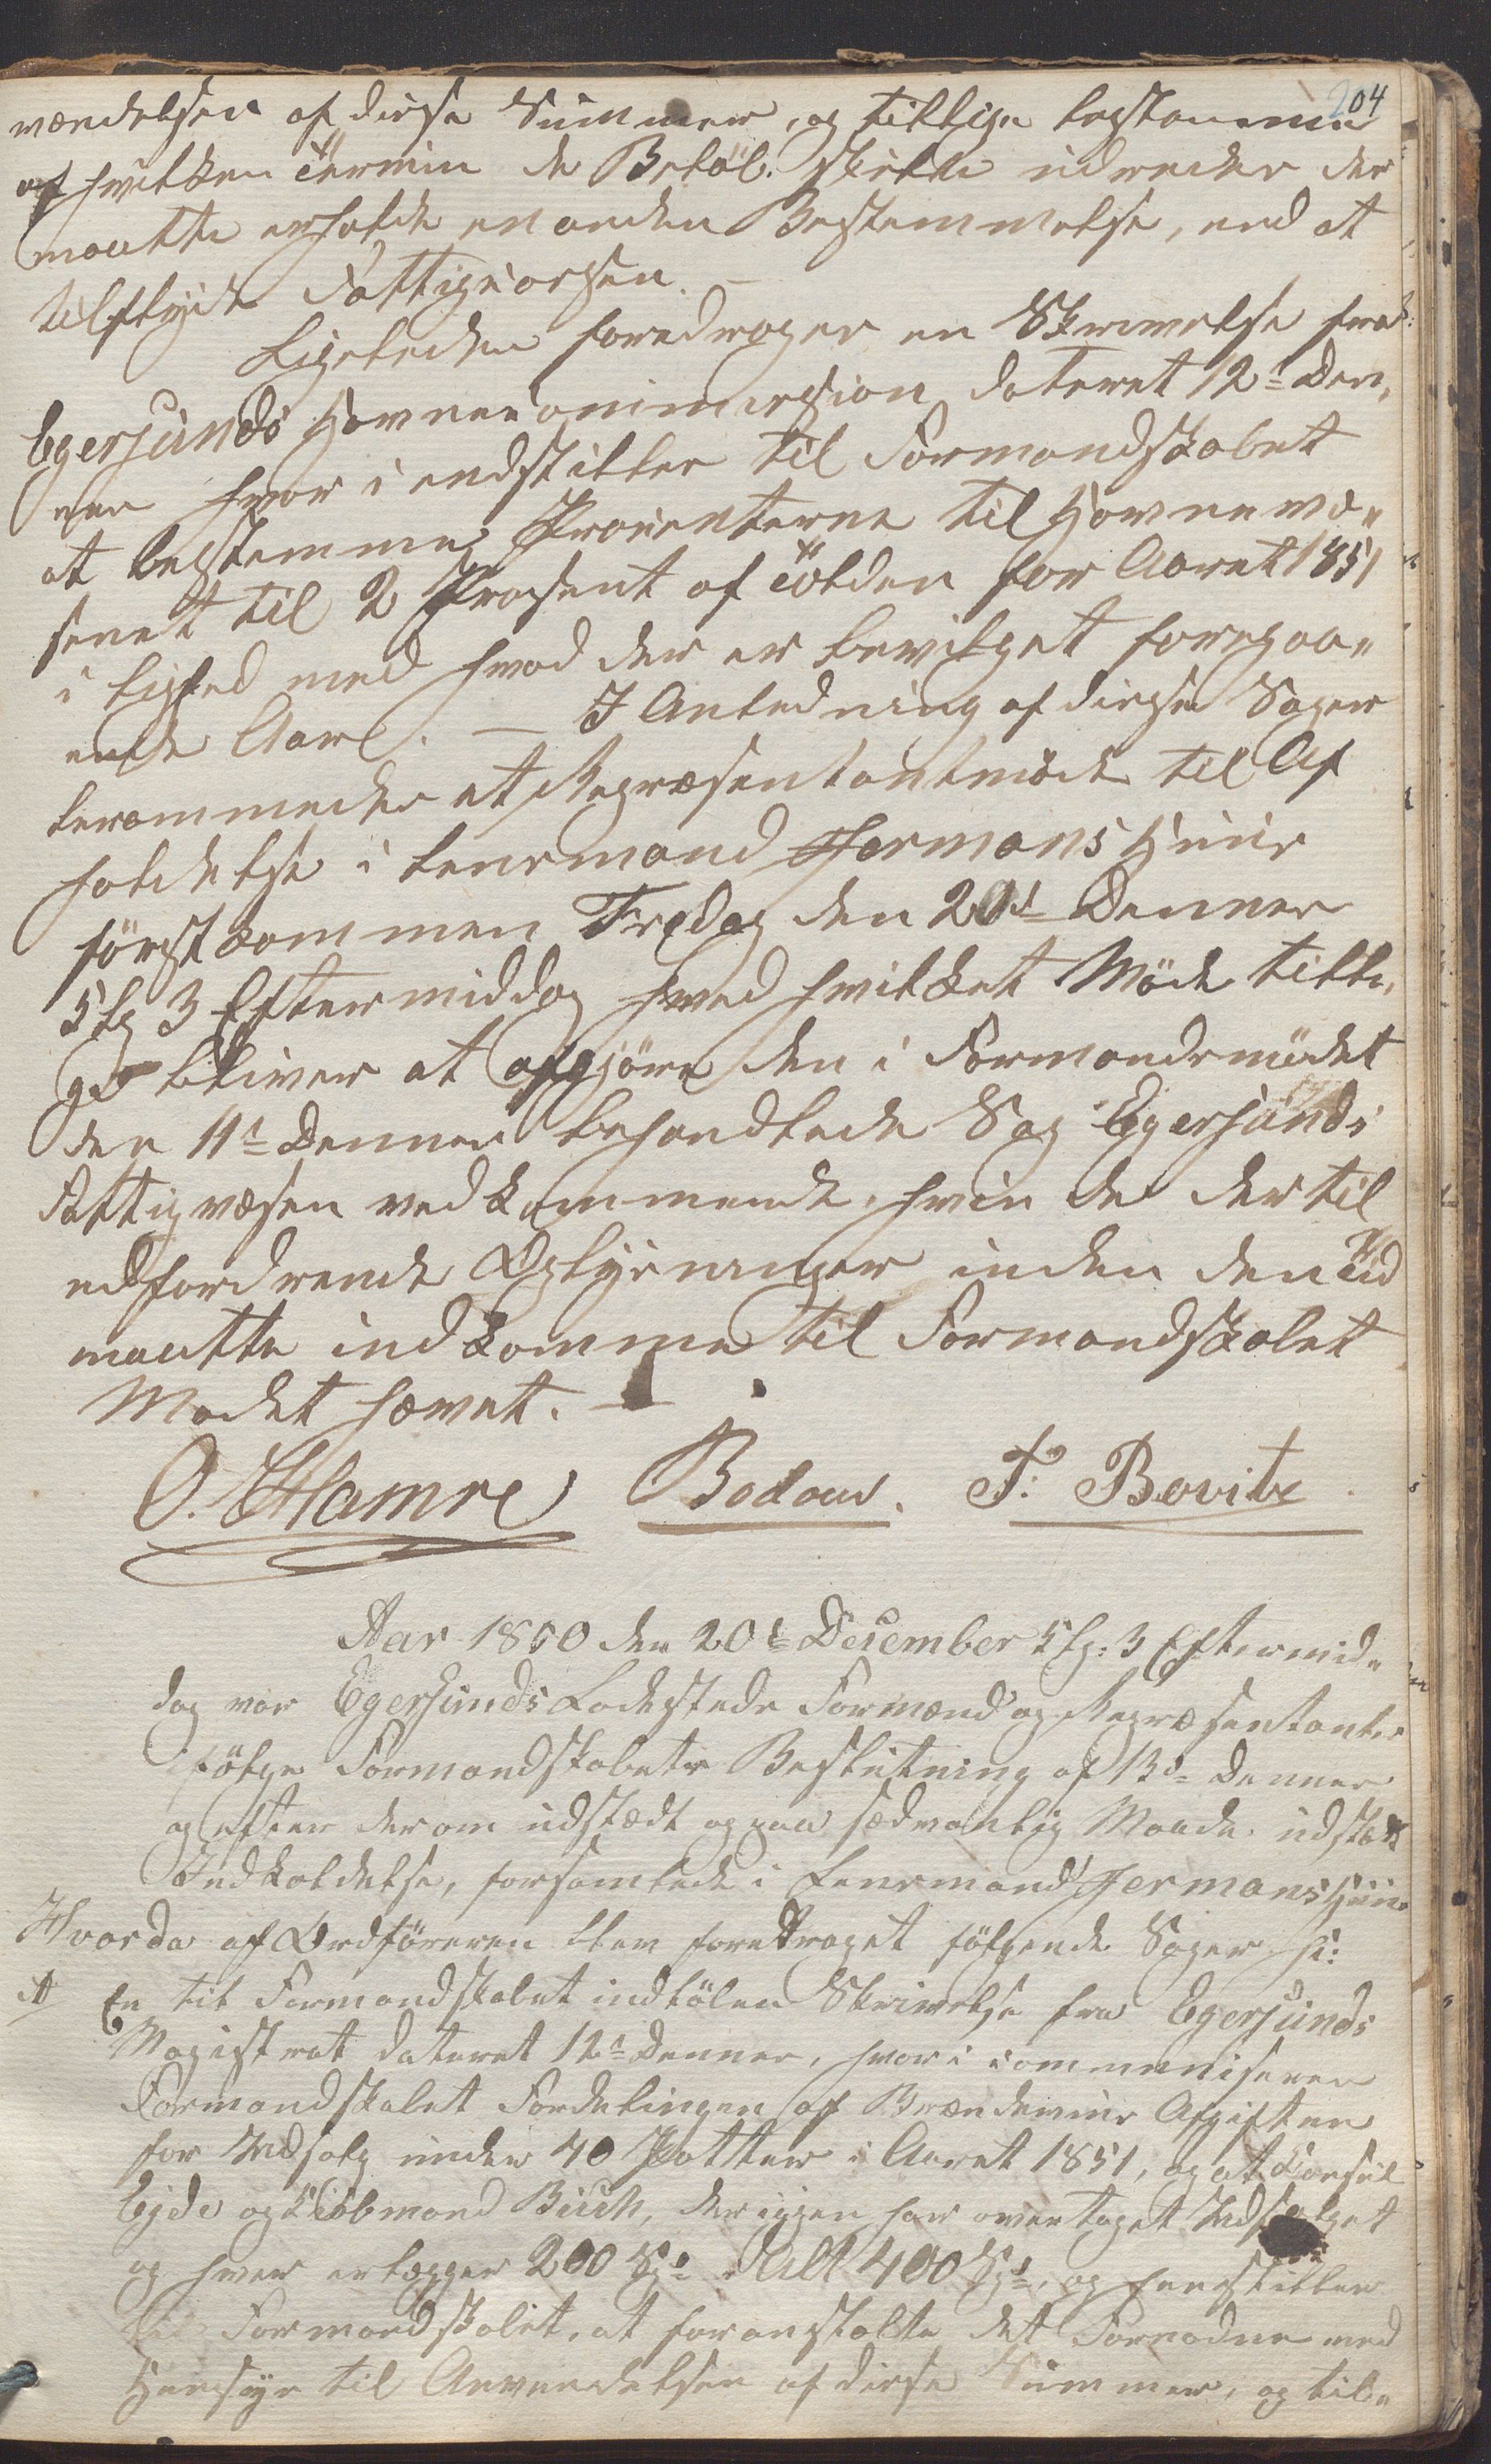 204
vendelsen af disse Summer, og tillige bestemme
af hvilken Termin de Beløb skulle udredes der
maatte erholde en anden Bestemmelse, end at
tilflyde Fattigkassen. —
Ligeledes foredroges en Skrivelse fra
Egersunds Havnecommission dateret 12te Den¬
nes hvori indstilles til Formandskabet
at bestemme Procenterne til Havnevæ¬
senet til 2 Prosent af Tolden for Aaret 1851
i Lighed med hvad der er bevilget foregaa¬
ende Aar. — I Anledning af disse Sager
berammedes et Repræsentantmøde til Af
holdelse i Lensmand Jermans Huus
førstkommen Fredag den 20de Dennes
Kl 3 Eftermiddag hved hvilket Møde tilli¬
ge bliver at afgjøre den i Formandsmødet
den 11te Dennes behandlede Sag Egersunds
Fattigvæsen vedkommende, hvis de dertil
udfordrende Oplysninger inden den Tid
maatte indkomme til Formandskabet
Mødet hævet. —
O. Hamre Bodom. T: Bowitz
Aar 1850 den 20de December Kl: 3 Eftermid¬
dag var Egersunds Ladesteds Formænd og Repræsentanter
ifølge Formandskabets Beslutning af 13de Dennes
og efter derom udstædt og paa sædvanlig Maade udstædt
Indkaldelse, forsamlede i Lensmand Jermans Huus
Hvorda af Ordføreren blev foredraget følgende Sager s:
A En til Formandskabet indløben Skrivelse fra Egersunds
Magistrat dateret 12te Dennes, hvori communiseres
Formandskabet Fordelingen af Brændeviins Afgiften
for Udsalg under 40 Potter i Aaret 1851, og at Consul
Eyde og Kiøbmand Buch, der igjen har overtaget Udsalget
og hver erlægger 200 Spd. i Alt 400 Spd. og henstilles
til Formandskabet, at foranstalte det Fornødne med
Hensyn til Anvendelsen af disse Summer, og til¬